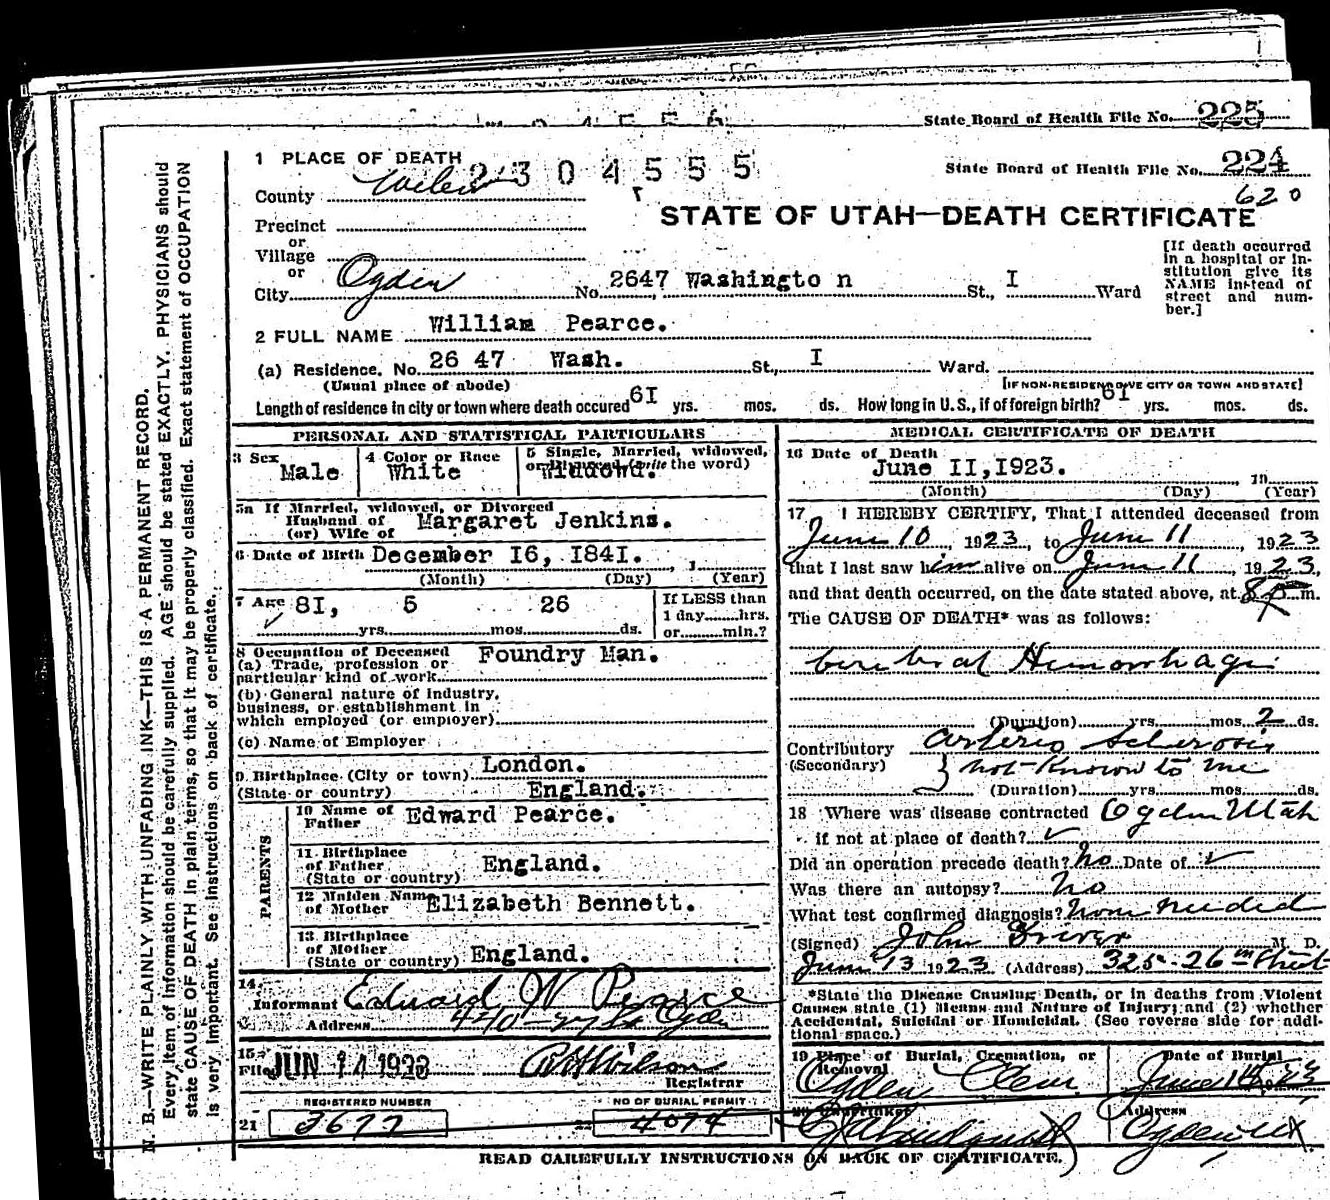 State Board of Health File No. 225
1 PLACE OF DEATH
2304555
State Board of Health File No. 224
620
County Weber
STATE OF UTAH—DEATH CERTIFICATE
Precinct
or
Village
or
City Ogden No. 2647 Washingto n St., I Ward
[If death occurred in a hospital or institution give its NAME instead of street and number.]
2 FULL NAME William Pearce.
(a) Residence, No. 26 47 Wash. St., I Ward.
(Usual place of abode) [IF NON-RESIDENT GIVE CITY OR TOWN AND STATE]
Length of residence in city or town where death occured 6I yrs. mos. ds. How long in U.S., if of foreign birth? 6I yrs. mos. ds.
PERSONAL AND STATISTICAL PARTICULARS
3 Sex Male
4 Color or Race White
5 Single, Married, widowed, or Divorced (write the word)
Widowd.
5a If Married, widowed, or Divorced
Husband of
(or) Wife of Margaret Jenkins.
6 Date of Birth December I6, I84I.
(Month) (Day) (Year)
7 Age 8I, 5 26
yrs. mos. ds.
If LESS than
1 day hrs.
or min.?
8 Occupation of Deceased
(a) Trade, profession or
particular kind of work Foundry Man.
(b) General nature of industry,
business, or establishment in
which employed (or employer)
(c) Name of Employer
9 Birthplace (City or town) London.
(State or country) England.
PARENTS
10 Name of
Father Edward Pearce.
11 Birthplace
of Father
(State or country) England.
12 Maiden Name
of Mother Elizabeth Bennett.
13 Birthplace
of Mother
(State or country) England.
14
Informant Edward W Pearce
Address 440-27th Ogden
15
Filed JUN 14 1923 Wilson
Registrar
REGISTERED NUMBER
21 3677
NO OF BURIAL PERMIT
22 4074
MEDICAL CERTIFICATE OF DEATH
16 Date of Death
June II, I923. 19
(Month) (Day) (Year)
17 I HEREBY CERTIFY, That I attended deceased from
June 10, 1923, to June 11, 1923
that I last saw him alive on June 11, 1923,
and that death occurred, on the date stated above, at 8 P m.
The CAUSE OF DEATH* was as follows:
Cerebral Hemorrhage
(Duration) yrs. mos. 2 ds.
Contributory Arterio Sclerosis
(Secondary) } not Known to me
(Duration) yrs. mos. ds.
18 Where was disease contracted Ogden Utah
if not at place of death? ✓
Did an operation precede death? No Date of ✓
Was there an autopsy? No
What test confirmed diagnosis? None needed
(Signed) John Driver M. D.
June 13 1923 (Address) 325-26th Street
*State the Disease Causing Death, or in deaths from Violent
Causes state (1) Means and Nature of Injury; and (2) whether
Accidental, Suicidal or Homicidal. (See reverse side for additional space.)
19 Place of Burial, Cremation, or Removal
Ogden Cem.
Date of Burial
June 14 23
20 Undertaker
Address
Ogden Ut
READ CAREFULLY INSTRUCTIONS ON BACK OF CERTIFICATE.
N. B.—WRITE PLAINLY WITH UNFADING INK—THIS IS A PERMANENT RECORD.
Every item of information should be carefully supplied. AGE should be stated EXACTLY. PHYSICIANS should
state CAUSE OF DEATH in plain terms, so that it may be properly classified. Exact statement of OCCUPATION
is very important. See instructions on back of certificate.